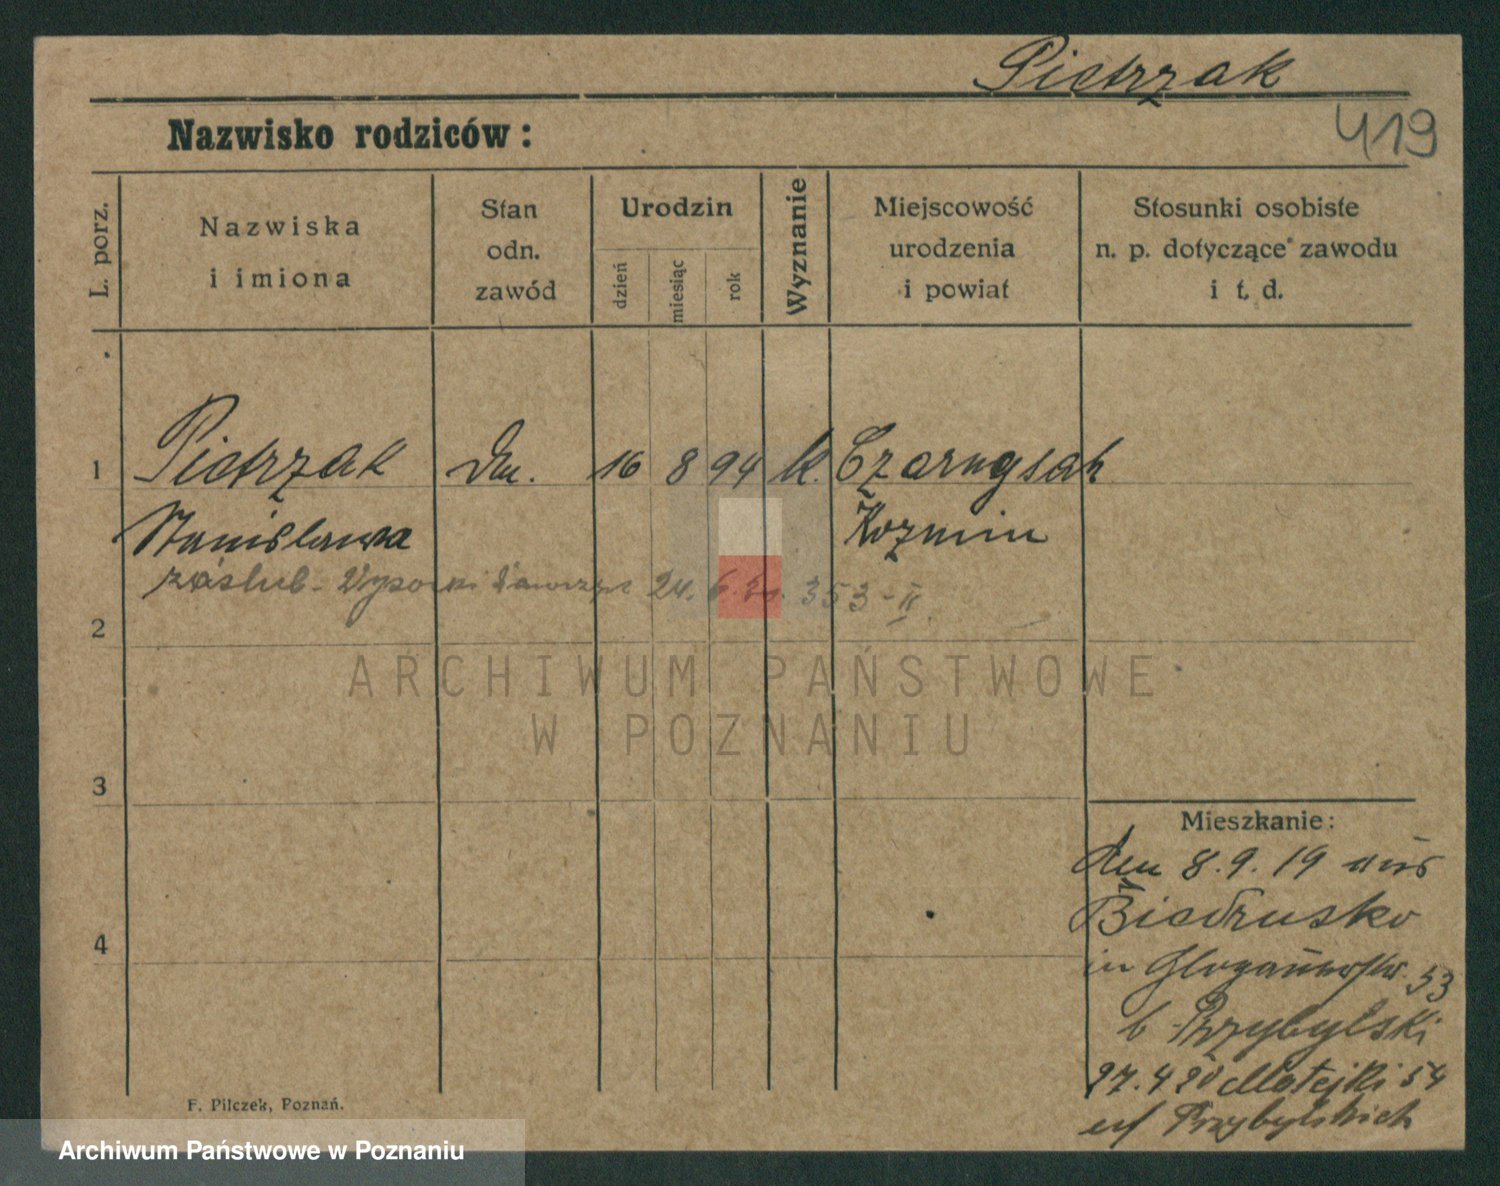 Pietrzak
419
Nazwisko rodziców:
L. porz.
Nazwiska
i imiona
Stan
odn.
zawód
Urodzin
dzień
miesiąc
rok
Wyznanie
Miejscowość
urodzenia
i powiat
Stosunki osobiste
n. p. dotyczące zawodu
i t. d.
1 Pietrzak 16 8 94 k. Czarnysad
Stanisława Kozmin
zaślub. Wysocki 24. 6. 353-II
2
3
4
Mieszkanie:
den 8.9.19 aus
Biedrusko
in 53
b Przybylski
27.4 20 Matejki 54
Przybylskich
F. Pilczek, Poznań.
ARCHIWUM PAŃSTWOWE
W POZNANIU
Archiwum Państwowe w Poznaniu